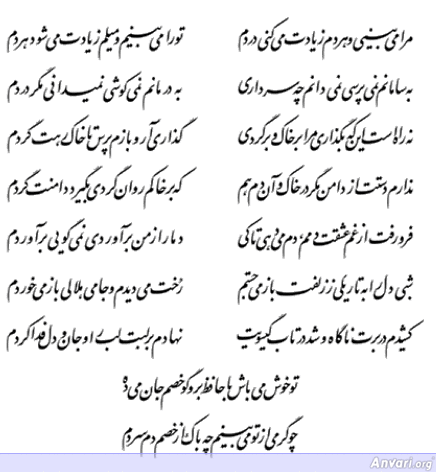 مرا می‌بینی و هر دم زیادت می‌کنی دردم تو را می‌بینم و میلم زیادت می‌شود هر دم
به سامانم نمی‌پرسی نمی‌دانم چه سر داری به درمانم نمی‌کوشی نمی‌دانی مگر دردم
نه راه است این که بگذاری مرا بر خاک و برگردی گذاری آر و بازم پرس تا خاک رهت گردم
ندارم دستت از دامن مگر در خاک و آن دم هم که بر خاکم روان گردی بگیرد دامنت گردم
فرو رفت از غم عشقت دمم دم می‌دهی تا کی دمار از من برآوردی نمی‌گویی برآوردم
شبی دل را به تاریکی ز زلفت باز می‌جستم رخت می‌دیدم و جامی هلالی باز می‌خوردم
کشیدم در برت ناگاه و شد در تاب گیسویت نهادم بر لبت لب را و جان و دل فدا کردم
تو خوش می‌باش با حافظ برو گو خصم جان می‌ده
چو گرمی از تو می‌بینم چه باک از خصم دم سردم
Anvari.org